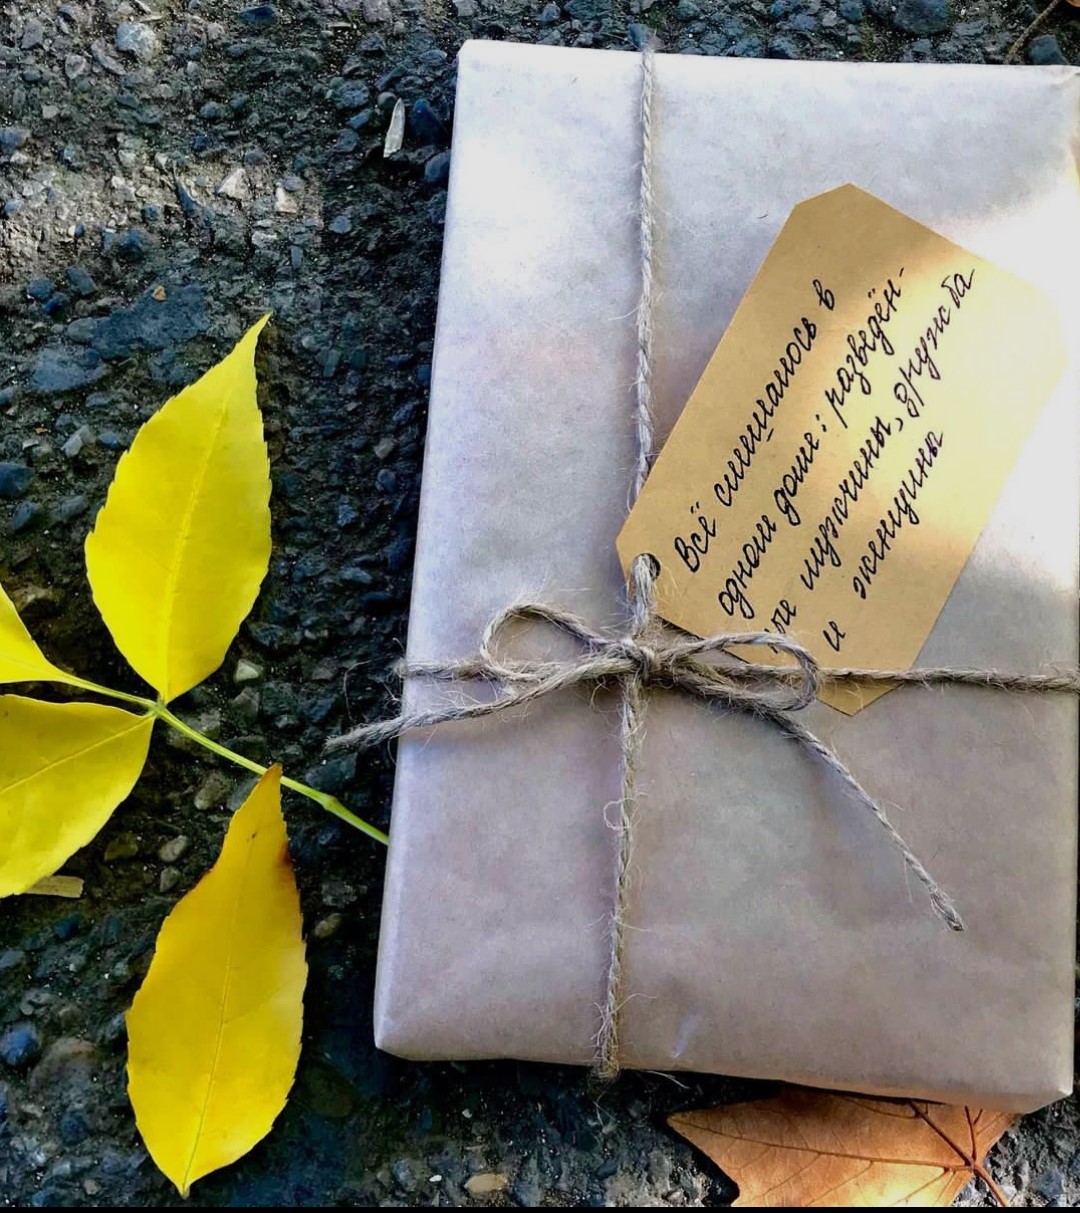 Всё смешалось в
одном доме: разведён-
ные мужчины, дружба
и женщины